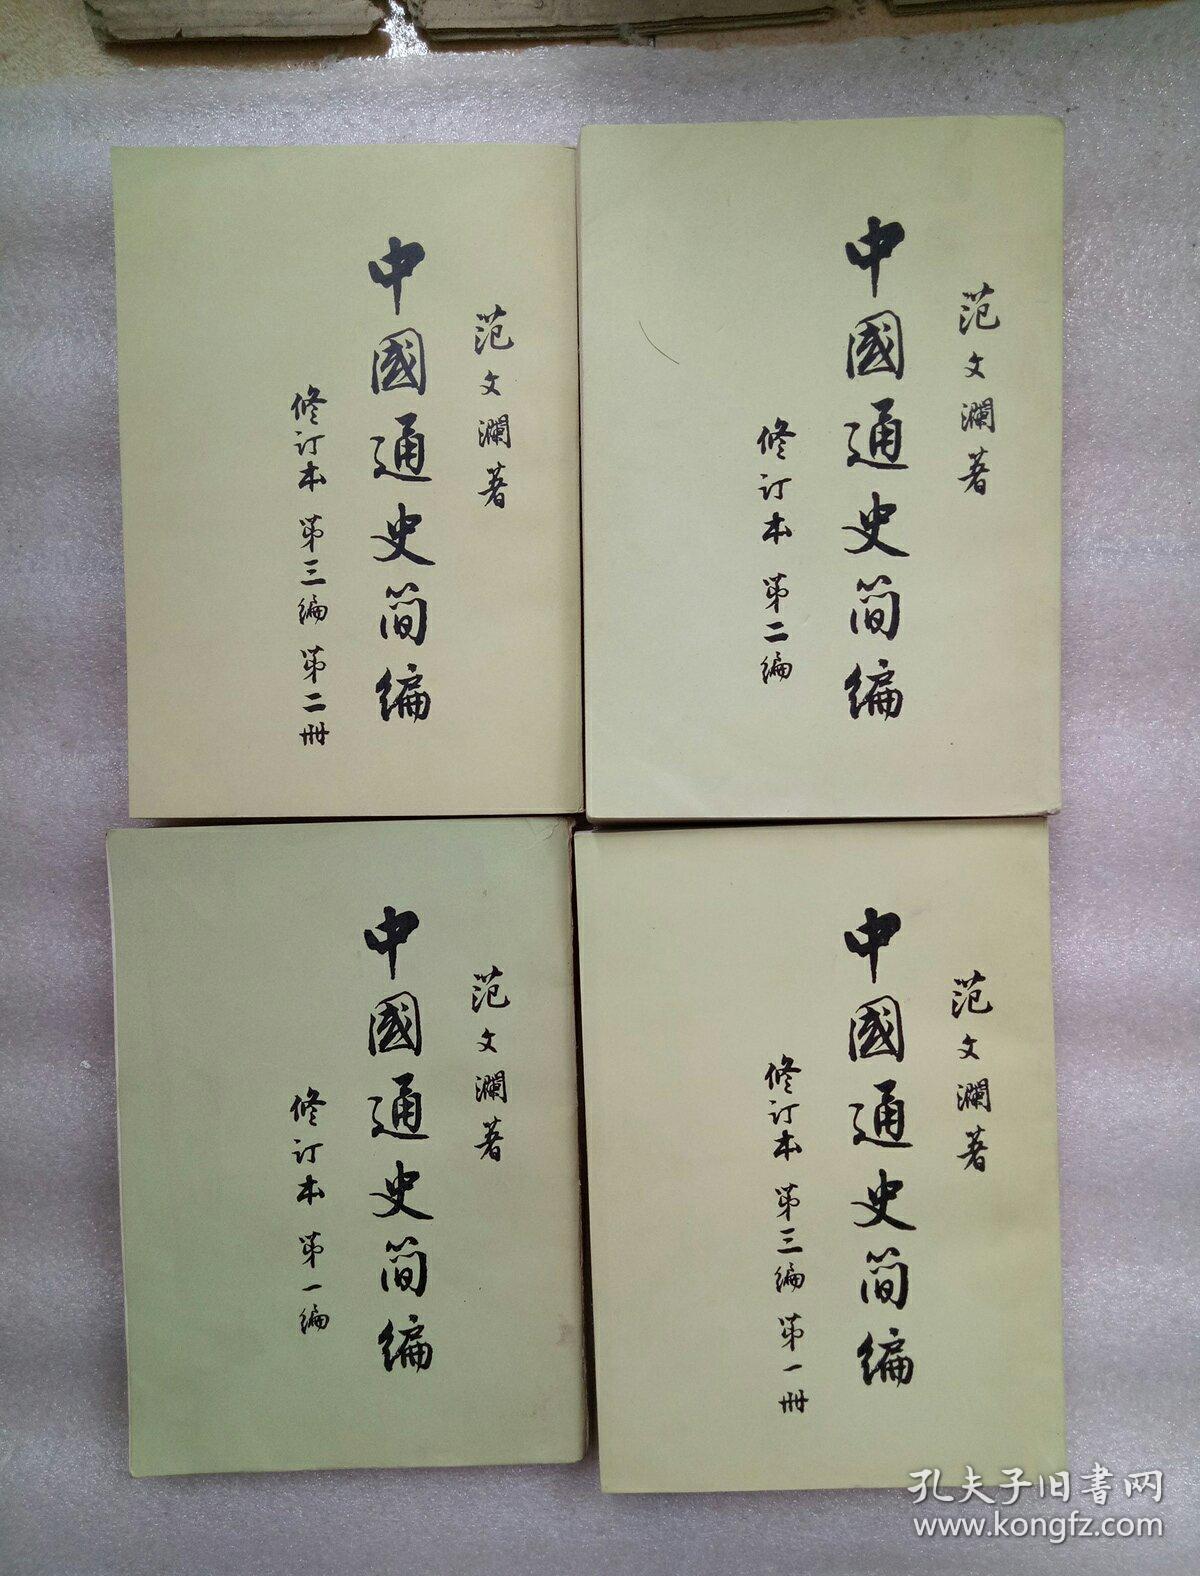 范文瀾著
中國通史简编
修订本 第三编 第二册
范文瀾著
中國通史简编
修订本 第二编
范文瀾著
中國通史简编
修订本 第一编
范文瀾著
中國通史简编
修订本 第三编 第一册
孔夫子旧書网
www.kongfz.com